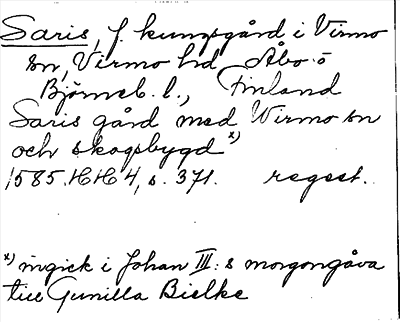 Saris, f. kungsgård i Virmo
sn, Virmo hd Åbo o
Björneb. l., Finland
Saris gård med Wirmo sn
och skogsbygd x)
1585. HH 4, s. 371. regest.
x) ingick i Johan III:s morgongåva
till Gunilla Bielke